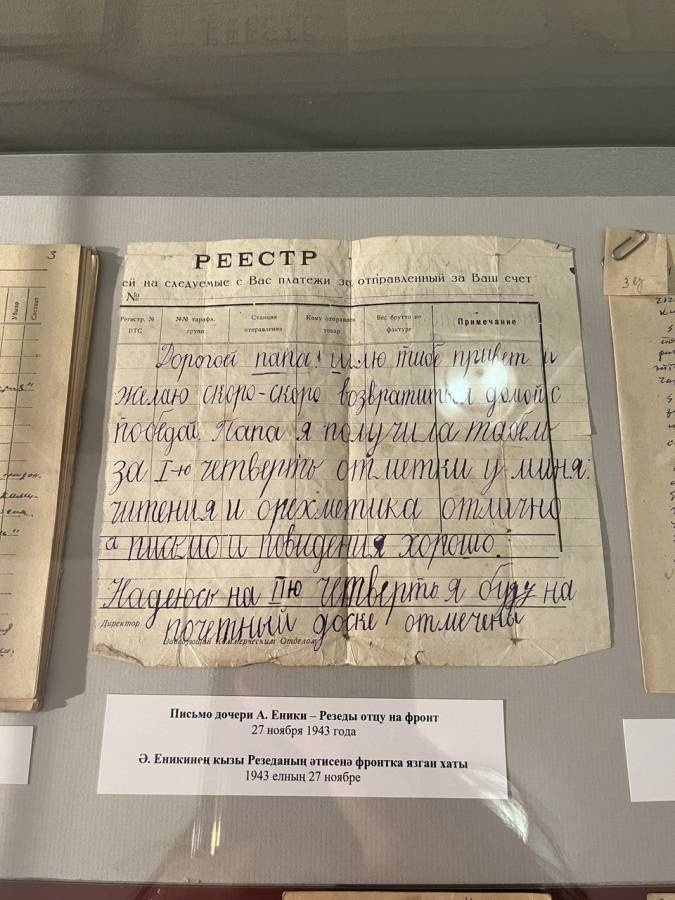 РЕЕСТР
ей на следуемые с Вас платежи за отправленный за Ваш счет
№
Регистр. № ВТС
№№ тарифн. групп
Станция отправления
Кому отправлен товар
Вес брутто по фактуре
Примечание
Дорогой папа! шлю тибе привет и
желаю скоро-скоро возвратится домой с
победой. Папа я получила табель
за I-ю четверть отметки у миня:
читения и орехметика отлично
а писмо и повидения хорошо.
Надеюсь на IIю четверть я буду на
почетный доске отмечены
Директор
Заведующий Коммерческим Отделом
Письмо дочери А. Еники – Резеды отцу на фронт
27 ноября 1943 года
Ә. Еникинең кызы Резеданың әтисенә фронтка язган хаты
1943 елның 27 ноябре
3
Убыло
Состоит